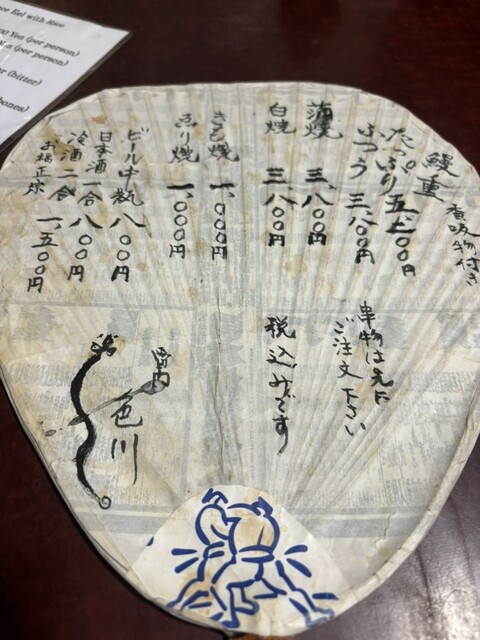 ce Eel with Rice
00 Yen (per person)
Yen (per person)
er (bitter)
bones)
鰻重 香吸物付き
たっぷり 五、七〇〇円
ふつう 三、八〇〇円
蒲焼 三、八〇〇円
白焼 三、八〇〇円
きも焼 一、〇〇〇円
ゑり焼 一、〇〇〇円
ビール中瓶 八〇〇円
日本酒一合 八〇〇円
冷酒二合 一、五〇〇円
お福正宗
串物は先に
ご注文下さい
税込みです
宮内
色川